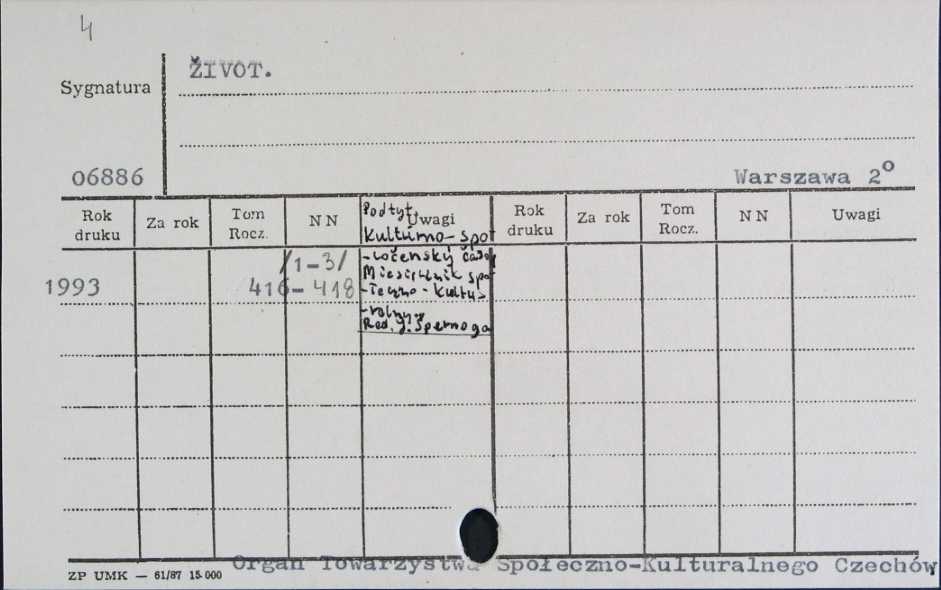 4
ŽIVOT.
Sygnatura
06886
Warszawa 2º
Rok druku
Za rok
Tom Rocz.
N N
Uwagi
Rok druku
Za rok
Tom Rocz.
N N
Uwagi
Podtyt.
Kultúrno-spo
-ločenský časo
Miesięcznik spo
-łeczno-kultu
-ralny.
Red. J. Špernoga
1993
/1-3/
416-418
Organ Towarzystwa Społeczno-Kulturalnego Czechów
ZP UMK — 61/87 15 000